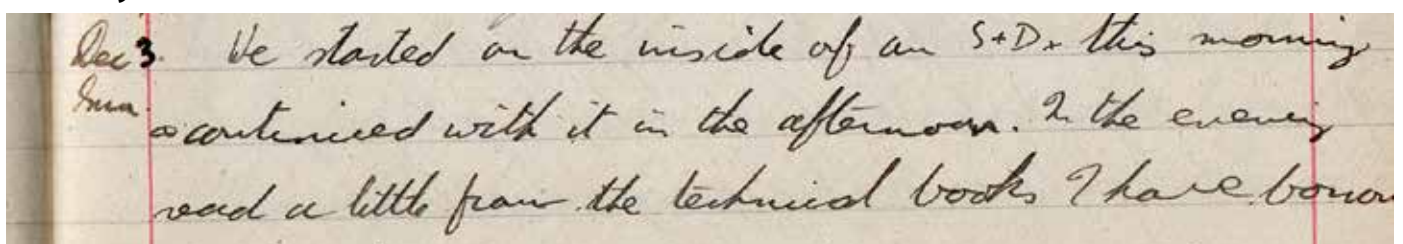 Dec 3. We started on the inside of an S+D. this morning
Sun. & continued with it in the afternoon. In the evening
read a little from the technical books I have borrow